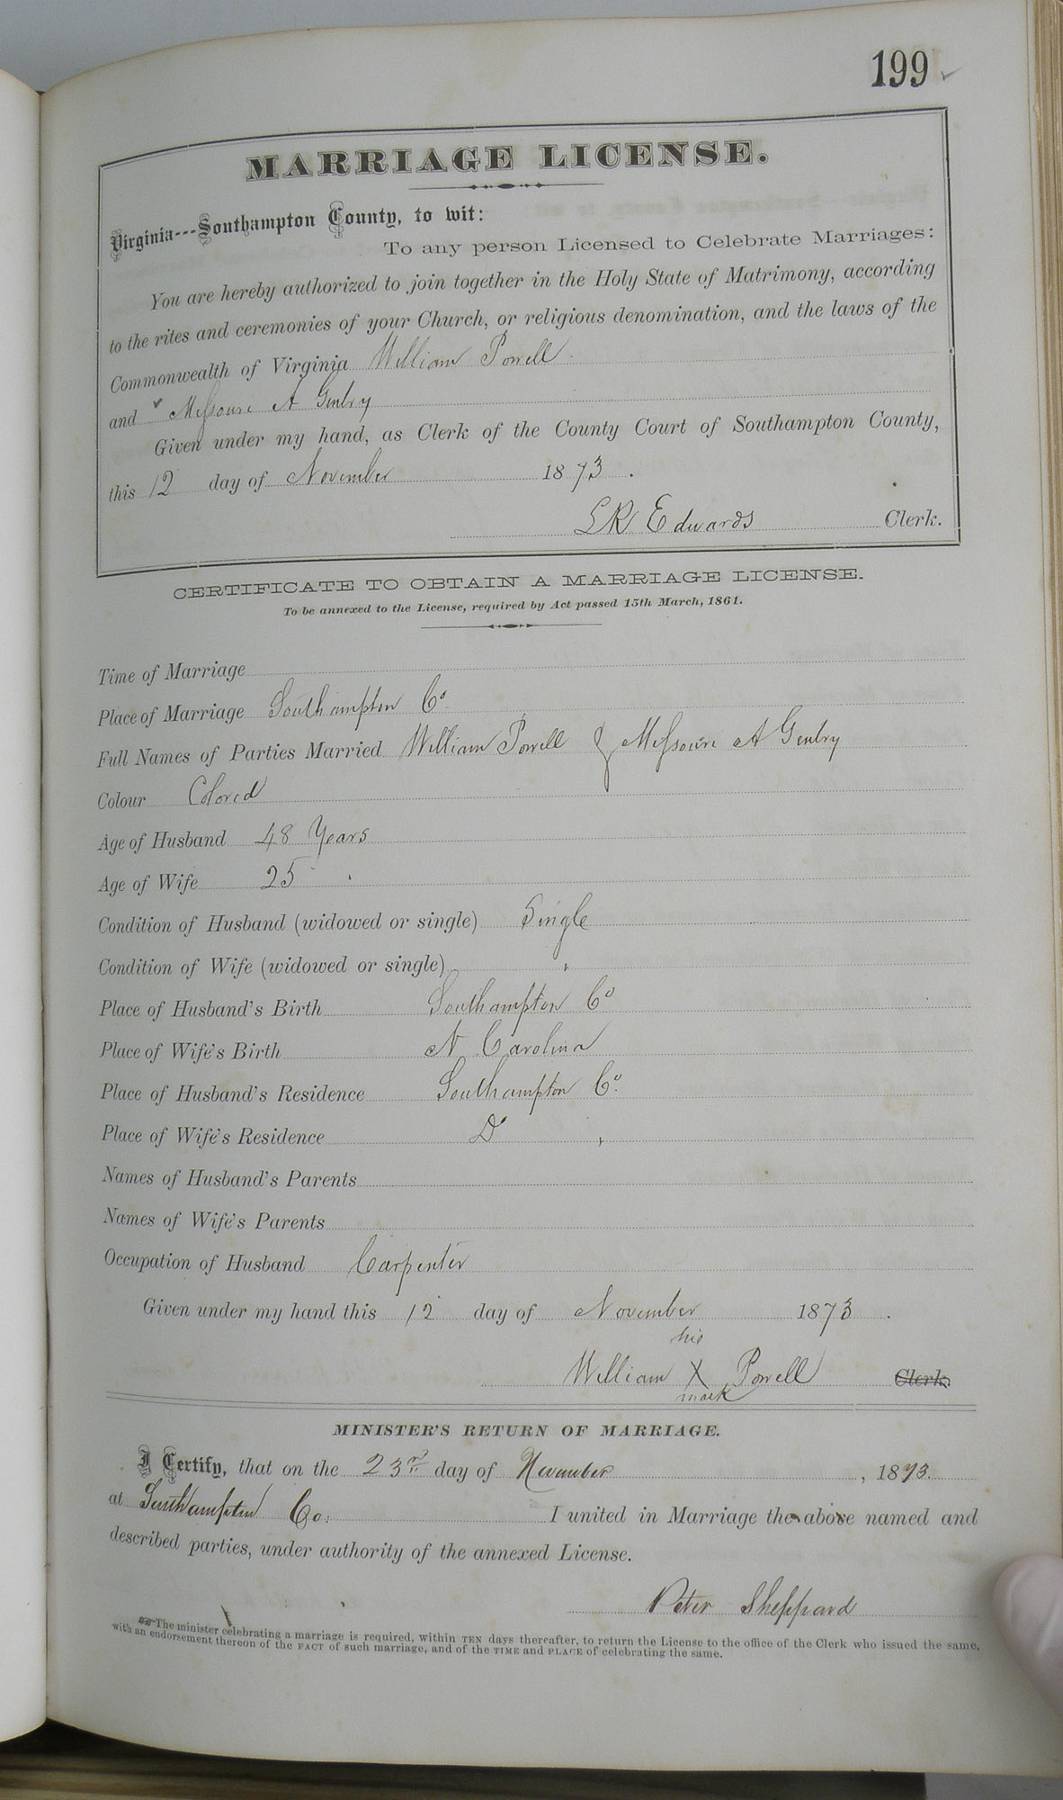 199 ✓
MARRIAGE LICENSE.
Virginia---Southampton County, to wit:
To any person Licensed to Celebrate Marriages:
You are hereby authorized to join together in the Holy State of Matrimony, according
to the rites and ceremonies of your Church, or religious denomination, and the laws of the
Commonwealth of Virginia William Powell
and Messouri A Gentry
Given under my hand, as Clerk of the County Court of Southampton County,
this 12 day of November 1873.
LR Edwards Clerk.
CERTIFICATE TO OBTAIN A MARRIAGE LICENSE.
To be annexed to the License, required by Act passed 15th March, 1861.
Time of Marriage
Place of Marriage Southampton Co
Full Names of Parties Married William Powell } Messouri A Gentry
Colour Colored
Age of Husband 48 Years
Age of Wife 25 "
Condition of Husband (widowed or single) Single
Condition of Wife (widowed or single) "
Place of Husband's Birth Southampton Co
Place of Wife's Birth N Carolina
Place of Husband's Residence Southampton Co.
Place of Wife's Residence Do "
Names of Husband's Parents
Names of Wife's Parents
Occupation of Husband Carpenter
Given under my hand this 12 day of November 1873.
his
William X Powell Clerk.
mark
MINISTER'S RETURN OF MARRIAGE.
I Certify, that on the 23rd day of November, 1873.
at Southampton Co: I united in Marriage the above named and
described parties, under authority of the annexed License.
Peter Sheppard
The minister celebrating a marriage is required, within TEN days thereafter, to return the License to the office of the Clerk who issued the same,
with an endorsement thereon of the FACT of such marriage, and of the TIME and PLACE of celebrating the same.